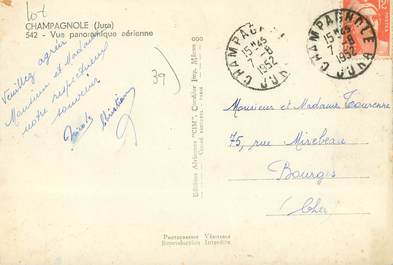 lot
CHAMPAGNOLE (Jura)
542 - Vue panoramique aérienne
Veuillez agréer
Monsieur et Madame
notre respectueux
souvenir
39)
CHAMPAGNOLE
15H45
7-8
1952
JURA
CHAMPAGNOLE
15H45
7-8
1952
JURA
Monsieur et Madame
75, rue Mirebeau
Bourges
(Cher)
Editions Aériennes "CIM", Combier Imp. Mâcon
PHOTOGRAPHIE VÉRITABLE
Reproduction Interdite